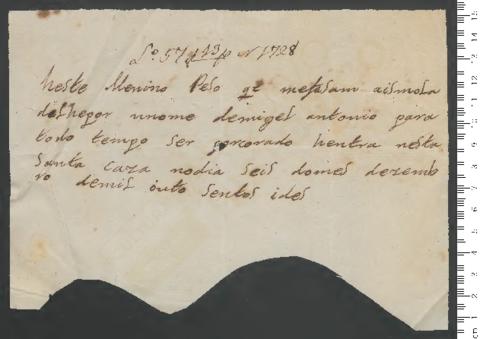 Lº 57 f 43 nº 1728
heste Menino Peso qe mefasam aismola
deshepor unome demigel antonio para
todo tempo ser porcorado hentra nesta
Santa caza nodia seis domes dezemb
ro demil outo Sentos ides